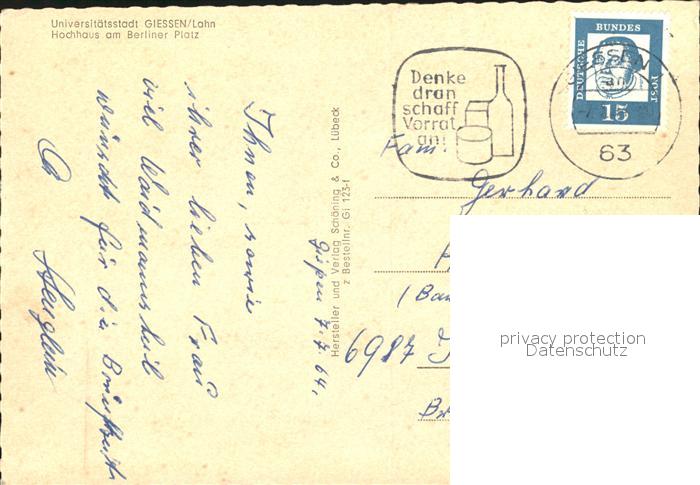 Universitätsstadt GIESSEN/Lahn
Hochhaus am Berliner Platz
Denke
dran
schaff
Vorrat
an!
DEUTSCHE BUNDES POST
15
GIESSEN
63
Ihnen, sowie
ihrer lieben Frau
viel Waidmannsheil
wünscht für die
Gießen 7.7.64.
Hersteller und Verlag Schöning & Co., Lübeck
z Bestellnr. Gi 123-f
Fam.
Gerhard
(Ba
6987
privacy protection
Datenschutz